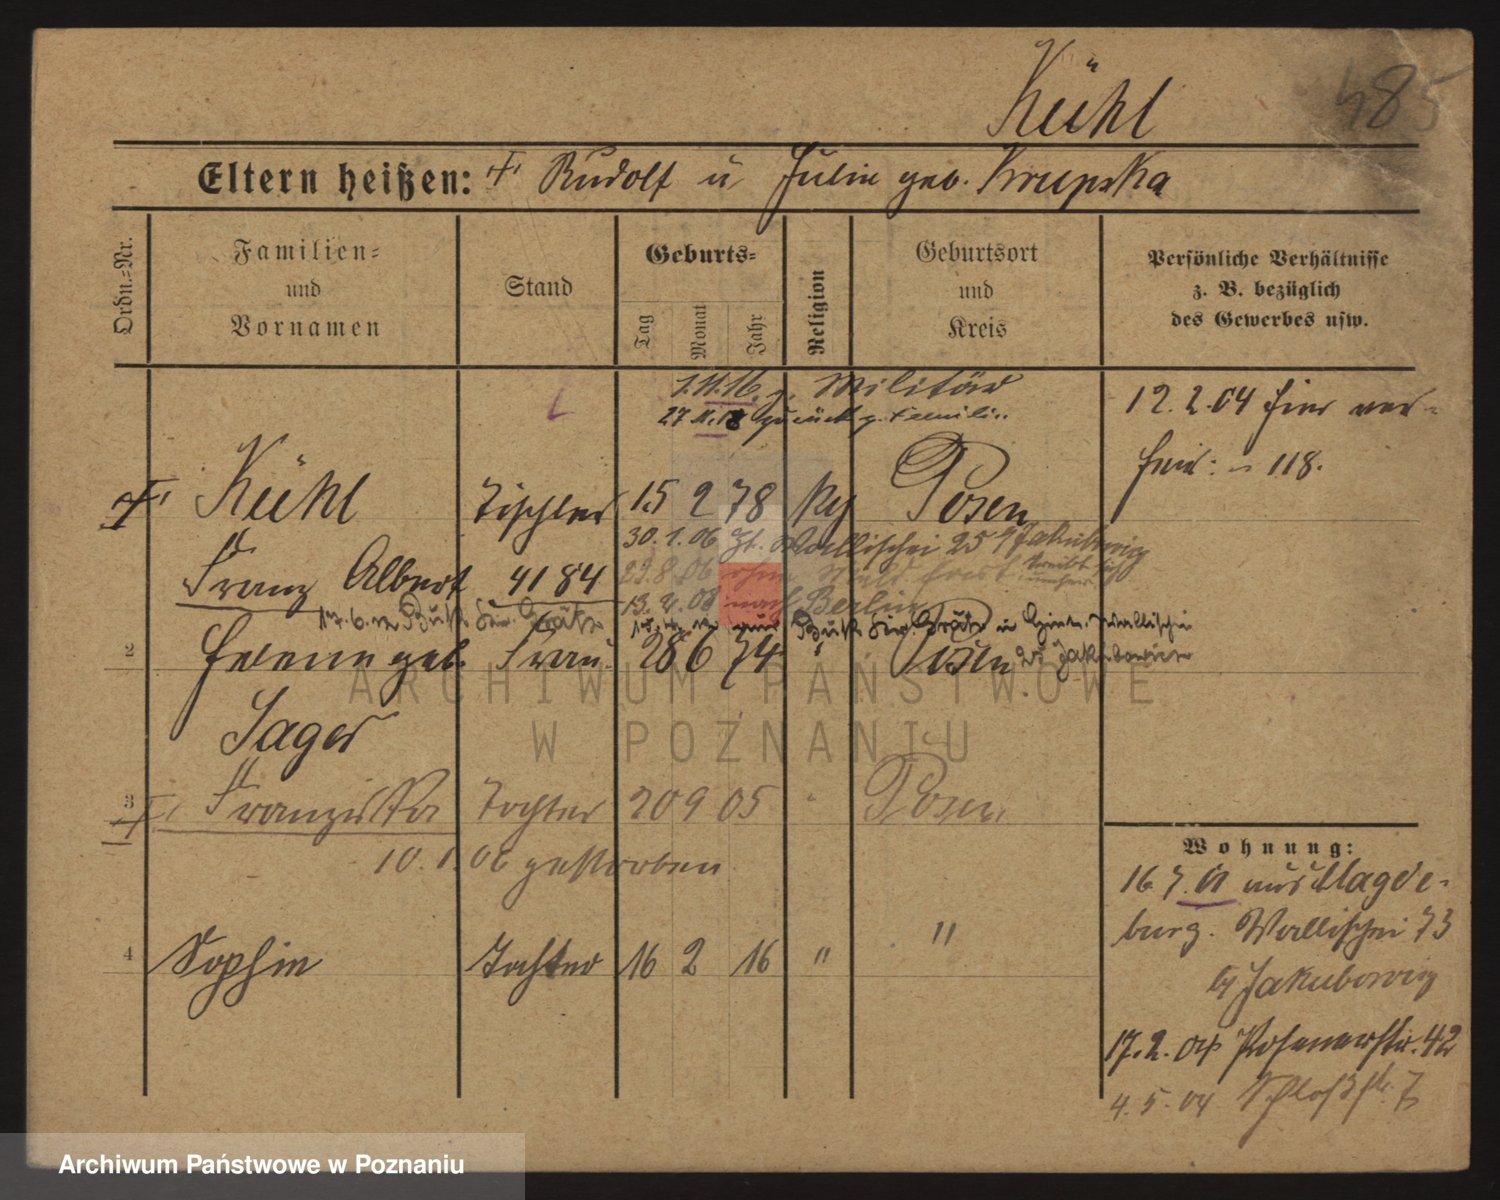 Kühl
485
Eltern heißen: Rudolf u Julie geb. Krupska
Ordn.-Nr.
Familien- und Vornamen
Stand
Geburts-
Tag
Monat
Jahr
Religion
Geburtsort und Kreis
Persönliche Verhältnisse z. B. bezüglich des Gewerbes usw.
1.11.16 z. Militär
27.11.18 zurück z. Familie
12.2.04 hier ver-
heir: 118.
Kühl Tischler 15 2 78 Posen
30.1.06 Wallischei 25 Jakubowicz
Franz Albert 4184
29.8.06 ohne
13.4.08 nach Berlin
2 Helene geb. Frau 28 6 74 " Posen
Jager
3 Franziska Tochter 20 9 05 " Posen
10.1.06 gestorben
4 Sophie Tochter 16 2 16 " "
Wohnung:
16.7.01 aus Magde-
burg. Wallischei 73
Jakubowicz
17.2.04 Posenerstr. 42
4.5.04 Schloßstr. 7
ARCHIWUM PAŃSTWOWE
W POZNANIU
Archiwum Państwowe w Poznaniu